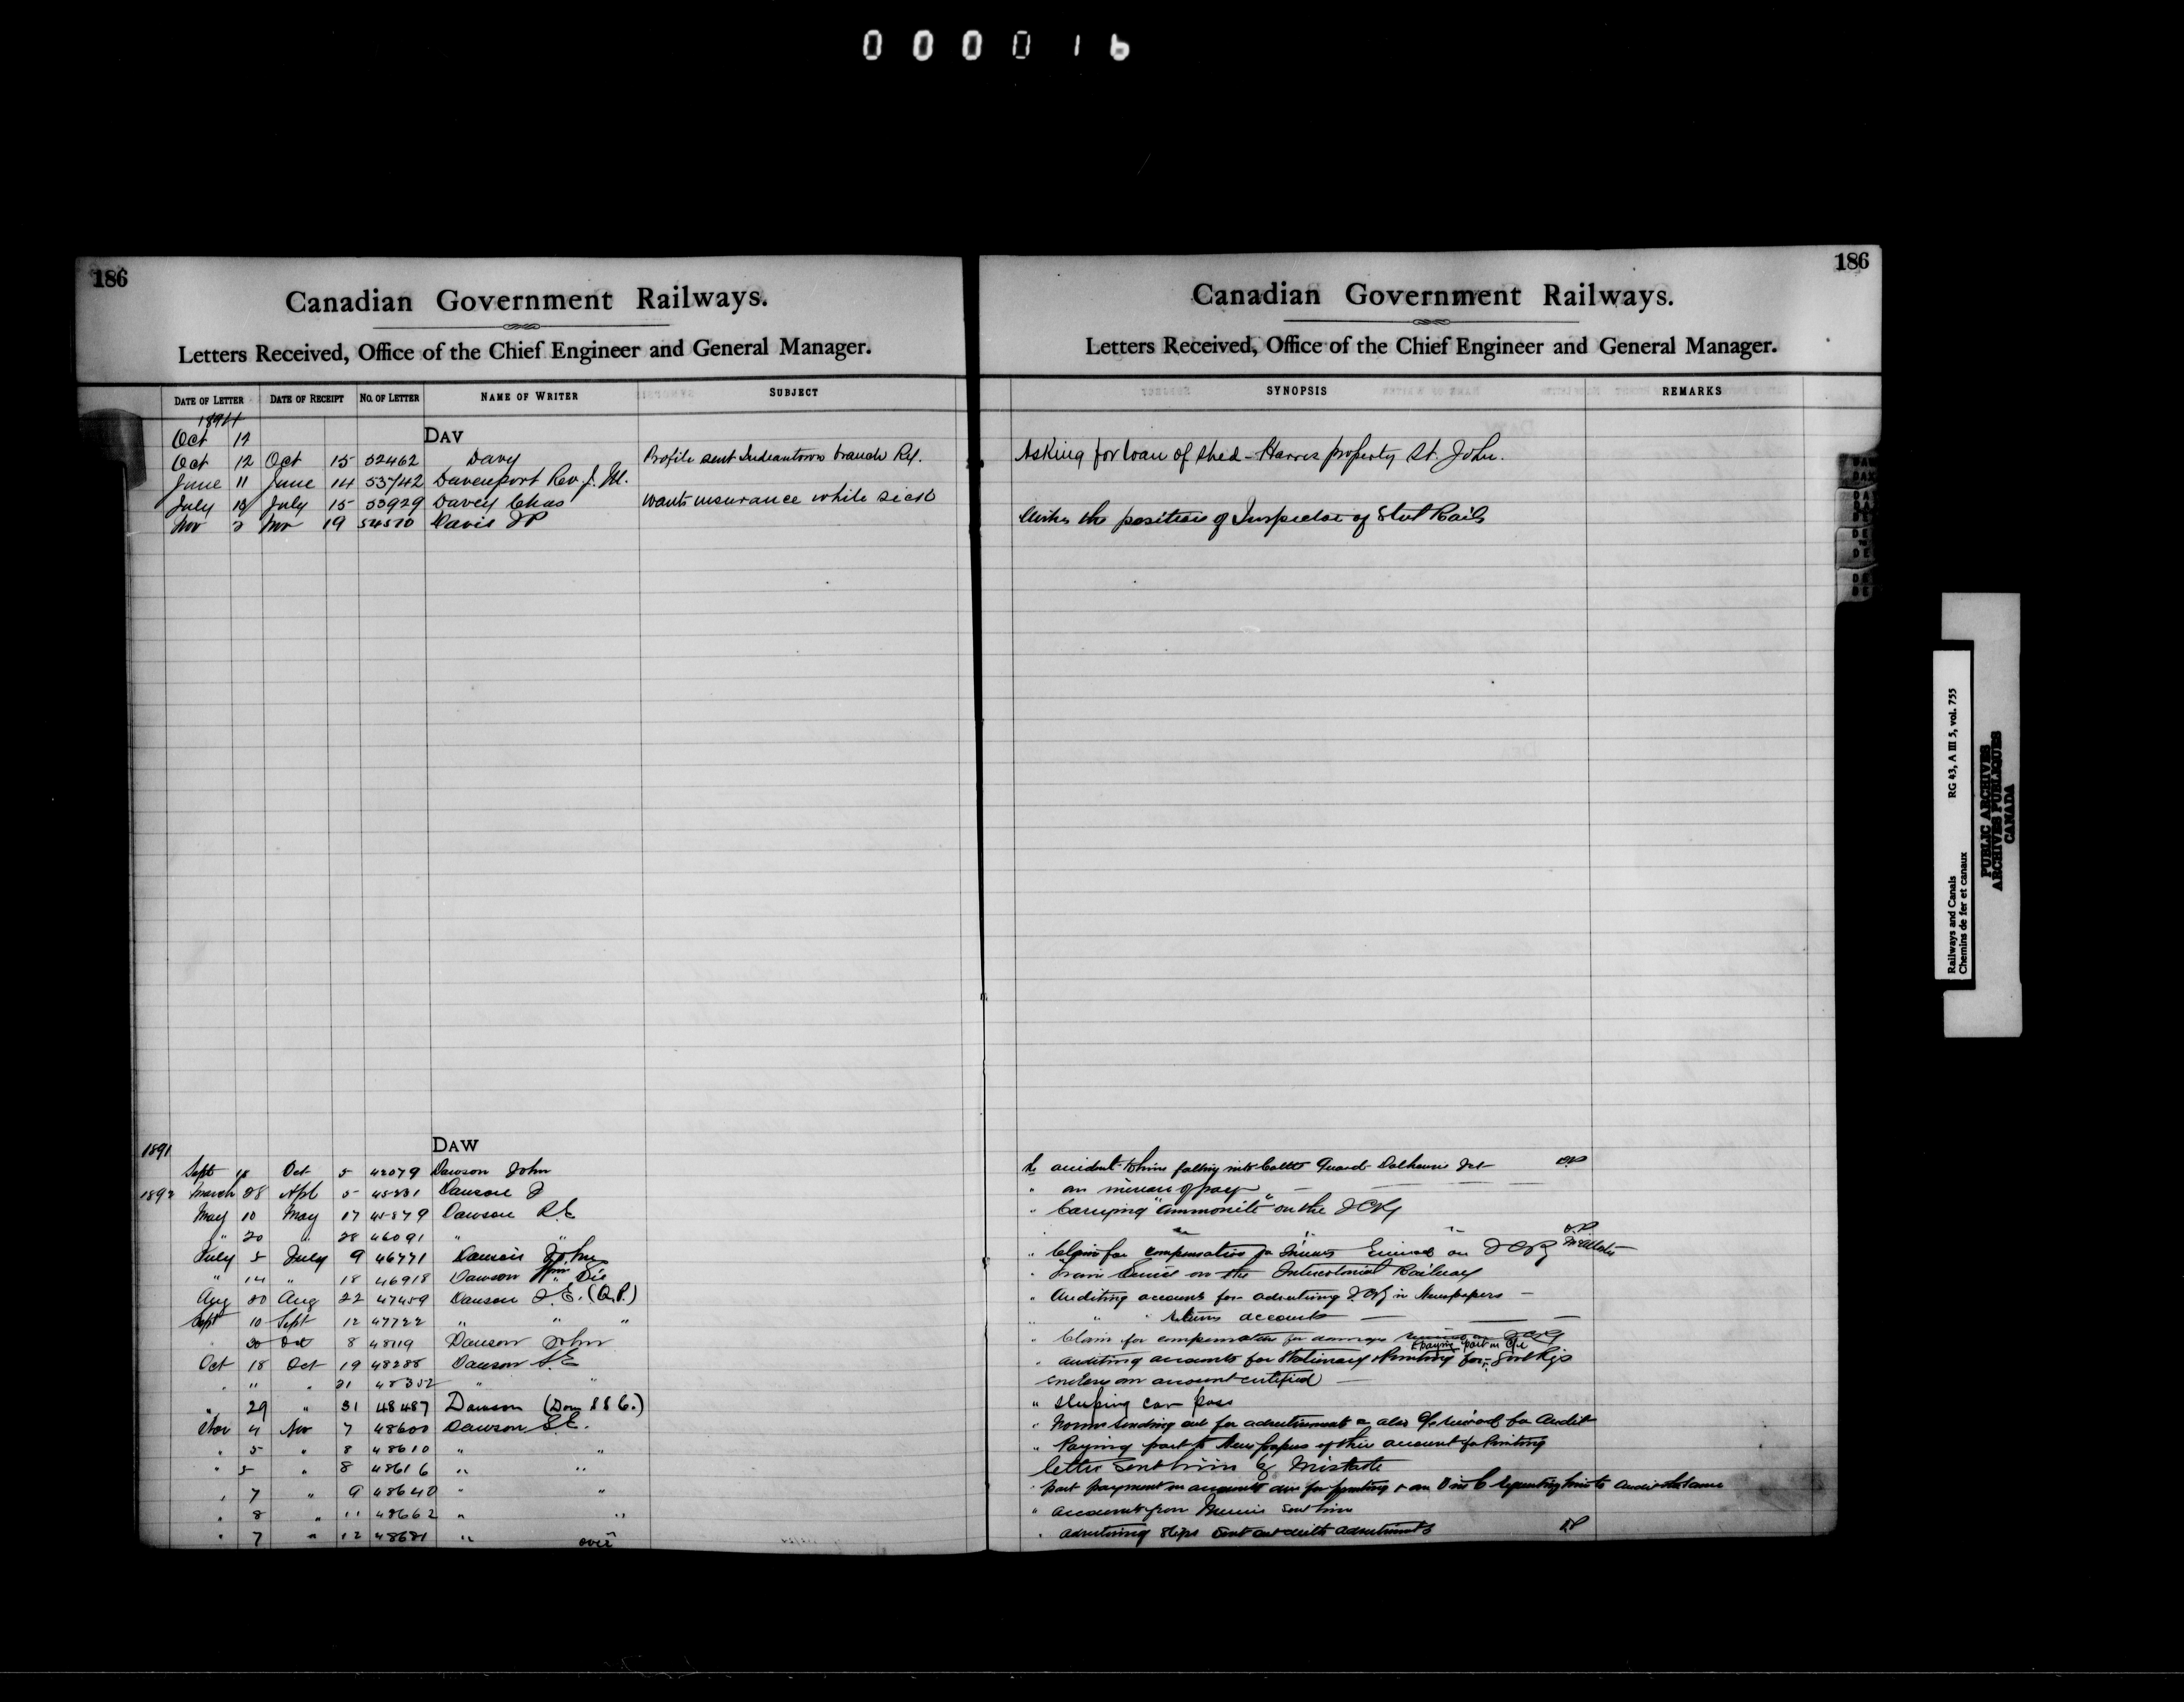 000016
186
Canadian Government Railways.
Letters Received, Office of the Chief Engineer and General Manager.
DATE OF LETTER DATE OF RECEIPT NO. OF LETTER NAME OF WRITER SUBJECT
1894
Oct 12 DAV
Oct 12 Oct 15 52462 Davy Profile sent Indeantown branch Ry.
June 11 June 14 53742 Davenport Rev J. M.
July 18 July 15 53929 Davey Chas wants insurance while sick
Nov 2 Nov 19 54570 Davis J P
1891 DAW
Sept 18 Oct 5 42079 Dawson John
1892 March 28 Apl 5 45231 Dawson J
May 10 May 17 45879 Dawson S.E
" 20 " 28 46091 " "
July 5 July 9 46771 Dawson John
" 14 " 18 46918 Dawson Wm
Aug 20 Aug 22 47459 Dawson S.E. (Q.P.)
Sept 10 Sept 12 47722 " " "
20 Oct 8 48119 Dawson John
Oct 18 Oct 19 48288 Dawson S.E
" " " 21 48352 " "
" 29 " 31 48487 Dawson (Dom S S C.)
Nov 4 Nov 7 48600 Dawson S.E.
" 5 " 8 48610 " "
" 5 " 8 48616 " "
" 7 " 9 48640 " "
" 8 " 11 48662 " "
" 7 " 12 48681 " over
186
Canadian Government Railways.
Letters Received, Office of the Chief Engineer and General Manager.
SYNOPSIS REMARKS
Asking for loan of shed - Harris property St. John.
Wishes the position of Inspector of Steel Rails
accident to him falling into Cattle Guard Dalhousie Jct
" an increase of pay
" Carrying "Ammonite" on the ICRy
" " "
" Claim for compensation for on ICRy
" Train Service on the Intercolonial Railway
" Auditing accounts for advertising ICRy in Newspapers
" " " accounts
" Claim for compensation for damage ICRy
paying part on a/c
" auditing accounts for Stationery & Printing for Govt Rys
enclosing an account certified
" sleeping car pass
" sending out for advertisements also for Audit
" Paying part to Newspapers of their account for Printing
letter sent him by mistake
" part payment on accounts due for printing
" accounts from sent him
" advertising slips sent out with advertisements
Railways and Canals RG 43, A III 5, vol. 755
Chemins de fer et canaux
PUBLIC ARCHIVES
ARCHIVES PUBLIQUES
CANADA